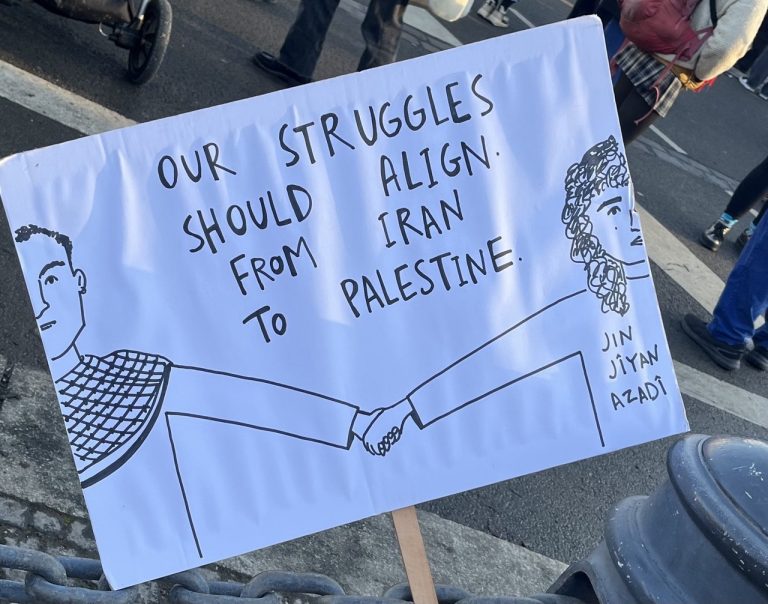 OUR STRUGGLES
SHOULD ALIGN.
FROM IRAN
TO PALESTINE.
JIN
JÎYAN
AZADÎ